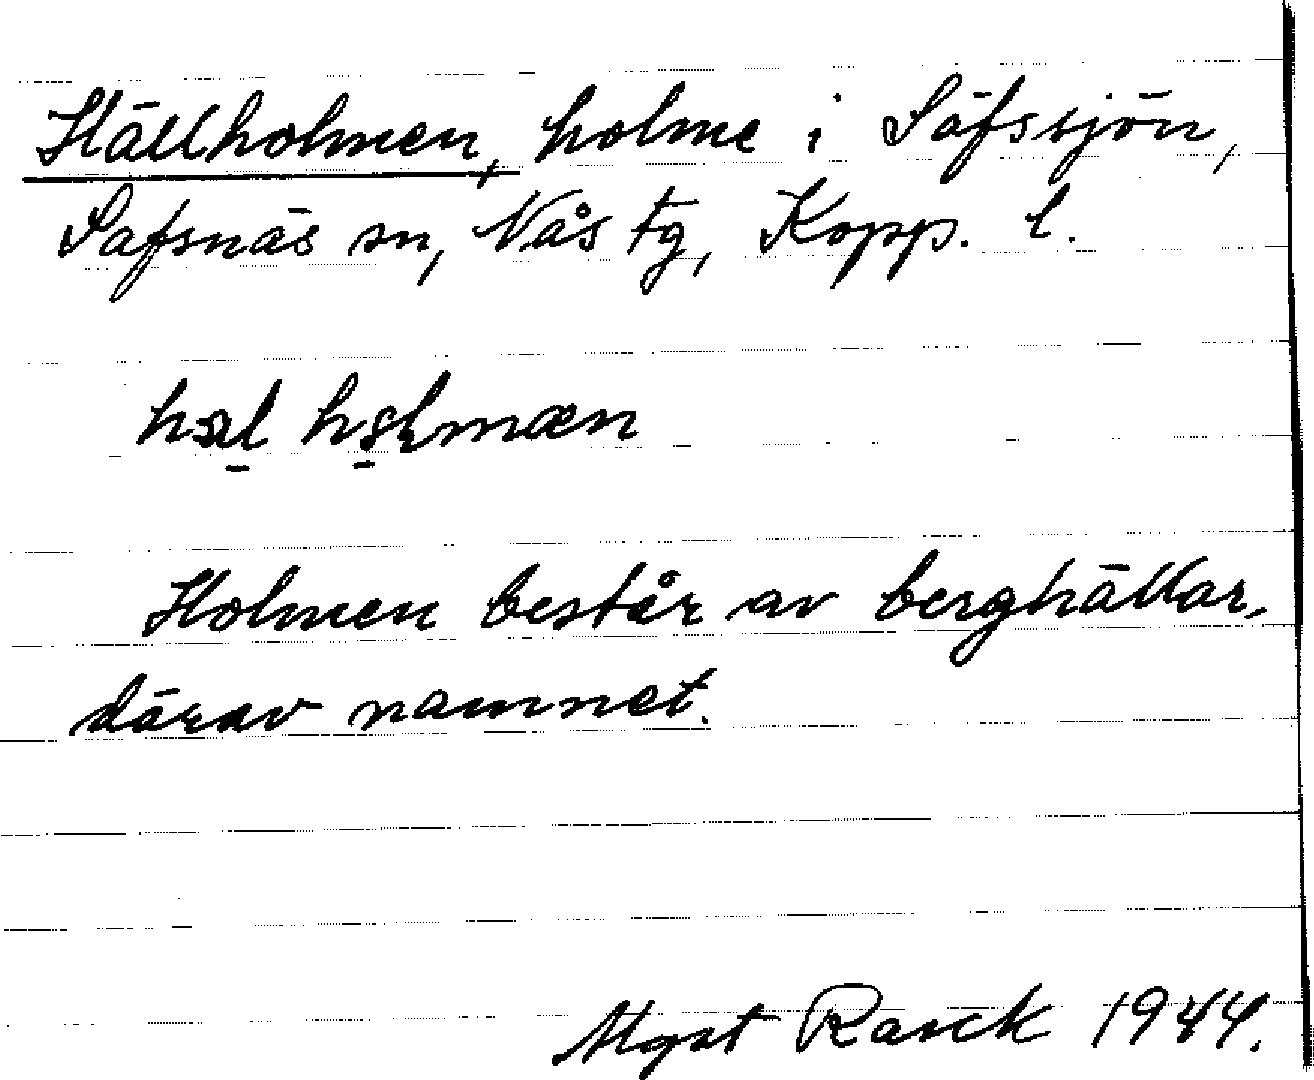 Hällholmen, holme i Säfssjön,
Säfsnäs sn, Nås tg, Kopp. l.
Holmen består av berghällar,
därav namnet.
Mgst Rasck 1944.